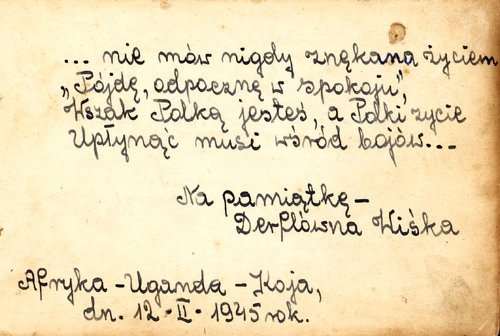 ... nie mów nigdy znękana życiem
„Pójdę, odpocznę w spokoju",
Wszak Polką jesteś, a Polki życie
Upłynąć musi wśród bojów...
Na pamiątkę –
Derflówna Wiśka
Afryka – Uganda – Koja,
dn. 12 · II · 1945 rok.